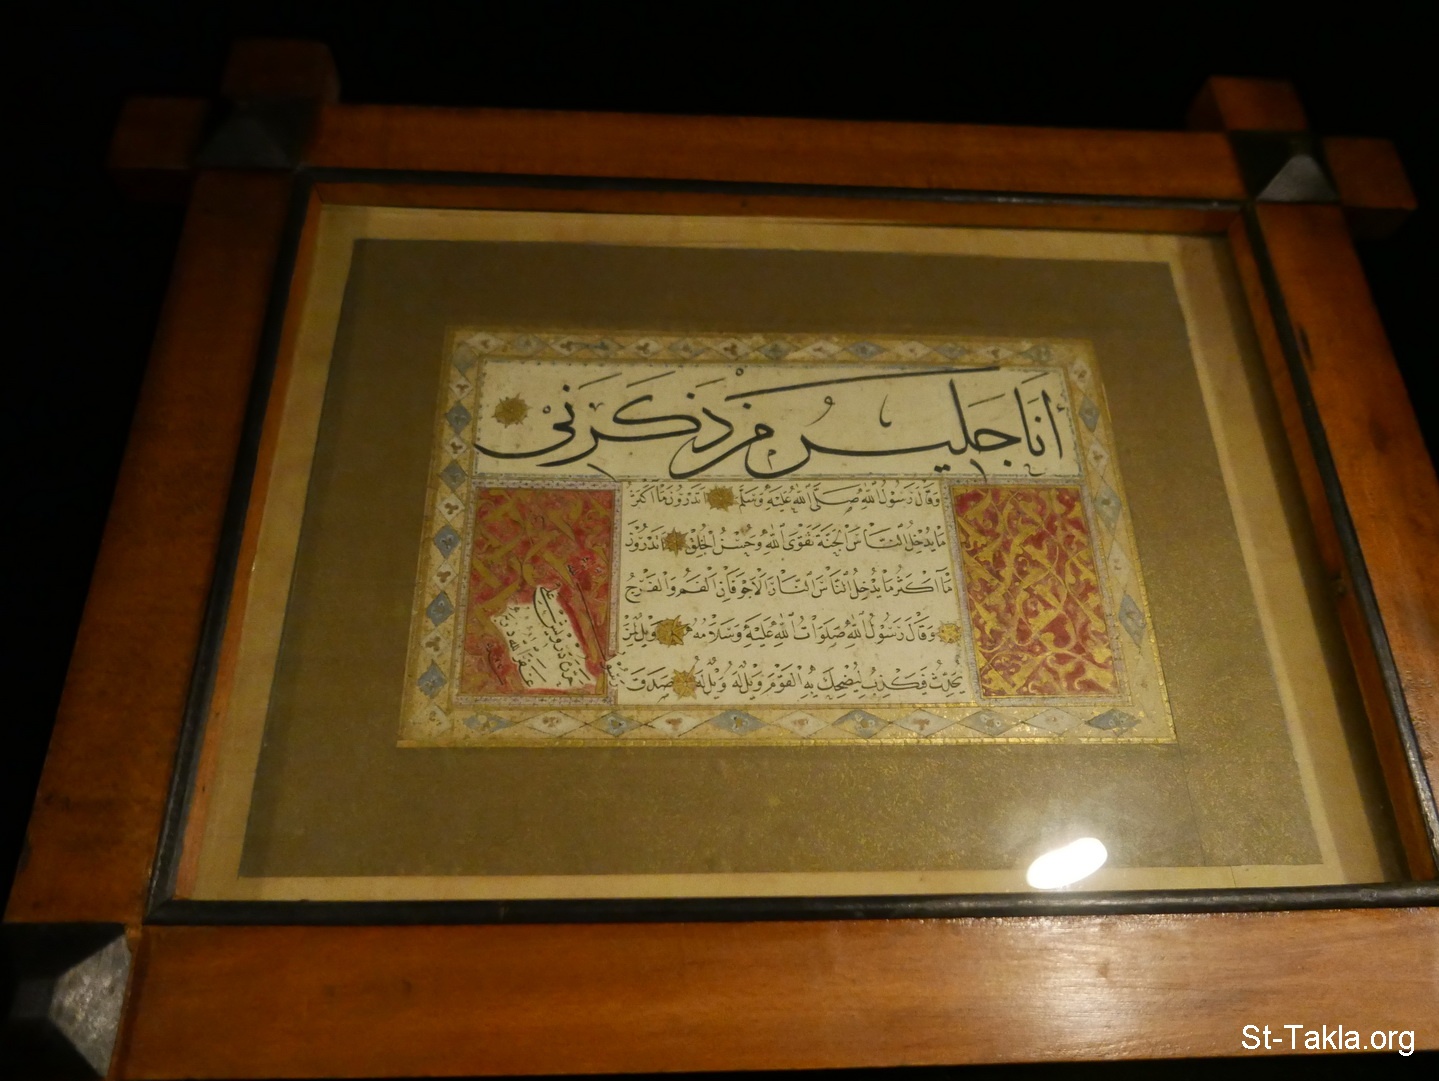 أنا جليس من ذكرني
وقال رسول الله صلى الله عليه وسلم اتدرون ما اكثر
ما يدخل الناس الجنة تقوى الله وحسن الخلق اتدرون
ما اكثر ما يدخل الناس النار الاجوفان الفم والفرج
وقال رسول الله صلوات الله عليه وسلامه ويل لمن
يحدث فيكذب ليضحك به القوم ويل له ويل له صدق
درويش على
غفر الله
St-Takla.org